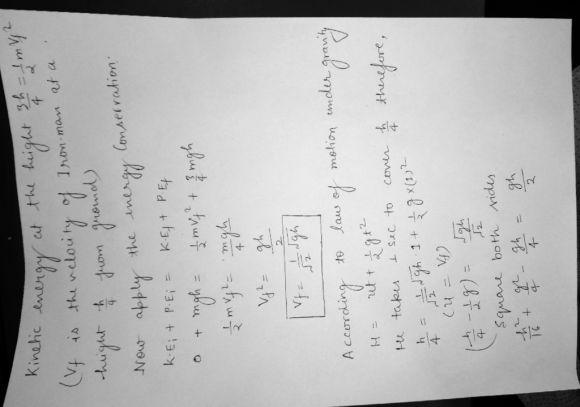 Kinetic energy at the height 3h/4 = 1/2 m Vf²
(Vf is the velocity of Iron-man at a
height h/4 from ground)
Now apply the energy conservation:
K.Ei + P.Ei = K.Ef + P.Ef
0 + mgh = 1/2 m Vf² + 3/4 mgh
1/2 m Vf² = mgh/4
Vf² = gh/2
Vf = 1/√2 √gh
According to laws of motion under gravity
H = ut + 1/2 gt²
He takes 1 sec to cover h/4 therefore,
h/4 = 1/√2 √gh · 1 + 1/2 g × (1)²
(u = Vf)
(h/4 - 1/2 g) = √gh/√2
Square both sides
h²/16 + g²/4 - gh/4 = gh/2